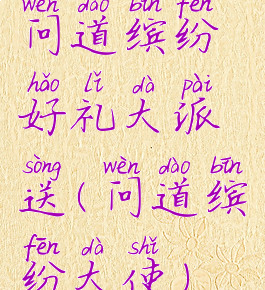 wèn dào bīn fēn
问道缤纷
hǎo lǐ dà pài
好礼大派
sòng wèn dào bīn
送(问道缤
fēn dà shǐ
纷大使)